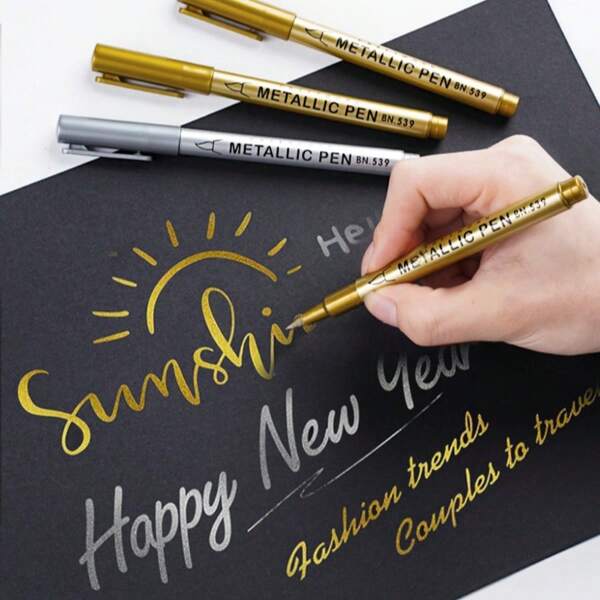 METALLIC PEN BN.539
METALLIC PEN BN.539
METALLIC PEN BN.539
METALLIC PEN BN.539
Sunshi
Happy New Year
Fashion trends
Couples to trave